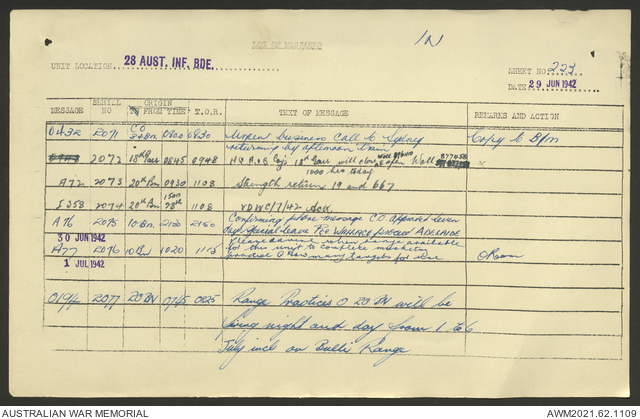 LOG OF MESSAGES
IN
UNIT LOCATION 28 AUST. INF. BDE.
SHEET NO. 223
DATE 29 JUN 1942
MESSAGE SERIAL NO ORIGIN FROM TIME T.O.R. TEXT OF MESSAGE REMARKS AND ACTION
0432 2071 CO Bn. 0800 0830 Urgent business call to Sydney Copy to B/m
returning by afternoon train
2072 18th Garr 0845 0948 18th Garr will close
1000 hrs today
A72 2073 20th Bn 0930 1108 Strength return 19 and 667
I358 2074 20th Bn 1108 VDWC/7/42 Ack.
A76 2075 10 Bn. 2100 2150 Confirming phone message C.O. approved seven
days special leave Pte WALLACE ADELAIDE
30 JUN 1942
A77 2076 10 Bn 1020 1115 Please advise when range available
for this unit to complete musketry
practice O How many targets for use
1 JUL 1942
0194 2077 20 BN 0745 0825 Range Practices O 20 BN will be
firing night and day from 1 to 6
July incl on Bulli Range
AUSTRALIAN WAR MEMORIAL
AWM2021.62.1109